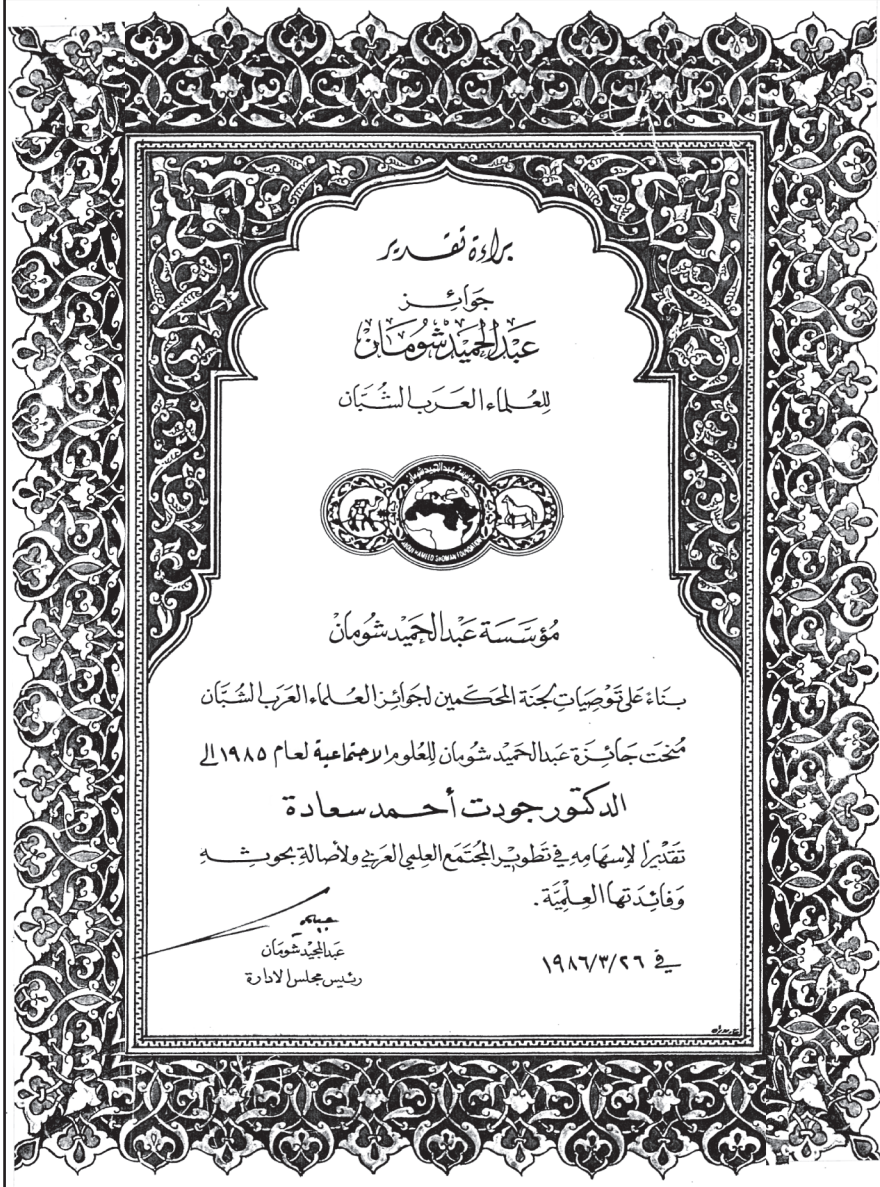 براءة تقدير
جوائز
عبد الحميد شومان
للعلماء العرب الشبان
مؤسسة عبد الحميد شومان
ABDUL HAMEED SHOMAN FOUNDATION
مؤسسة عبد الحميد شومان
بناءً على توصيات لجنة المحكمين لجوائز العلماء العرب الشبان
منحت جائزة عبد الحميد شومان للعلوم الاجتماعية لعام ١٩٨٥ إلى
الدكتور جودت أحمد سعادة
تقديراً لإسهامه في تطوير المجتمع العلمي العربي ولأصالة بحوثه
وفائدتها العلمية.
عبد المجيد شومان
رئيس مجلس الادارة
في ١٩٨٦/٣/٢٦